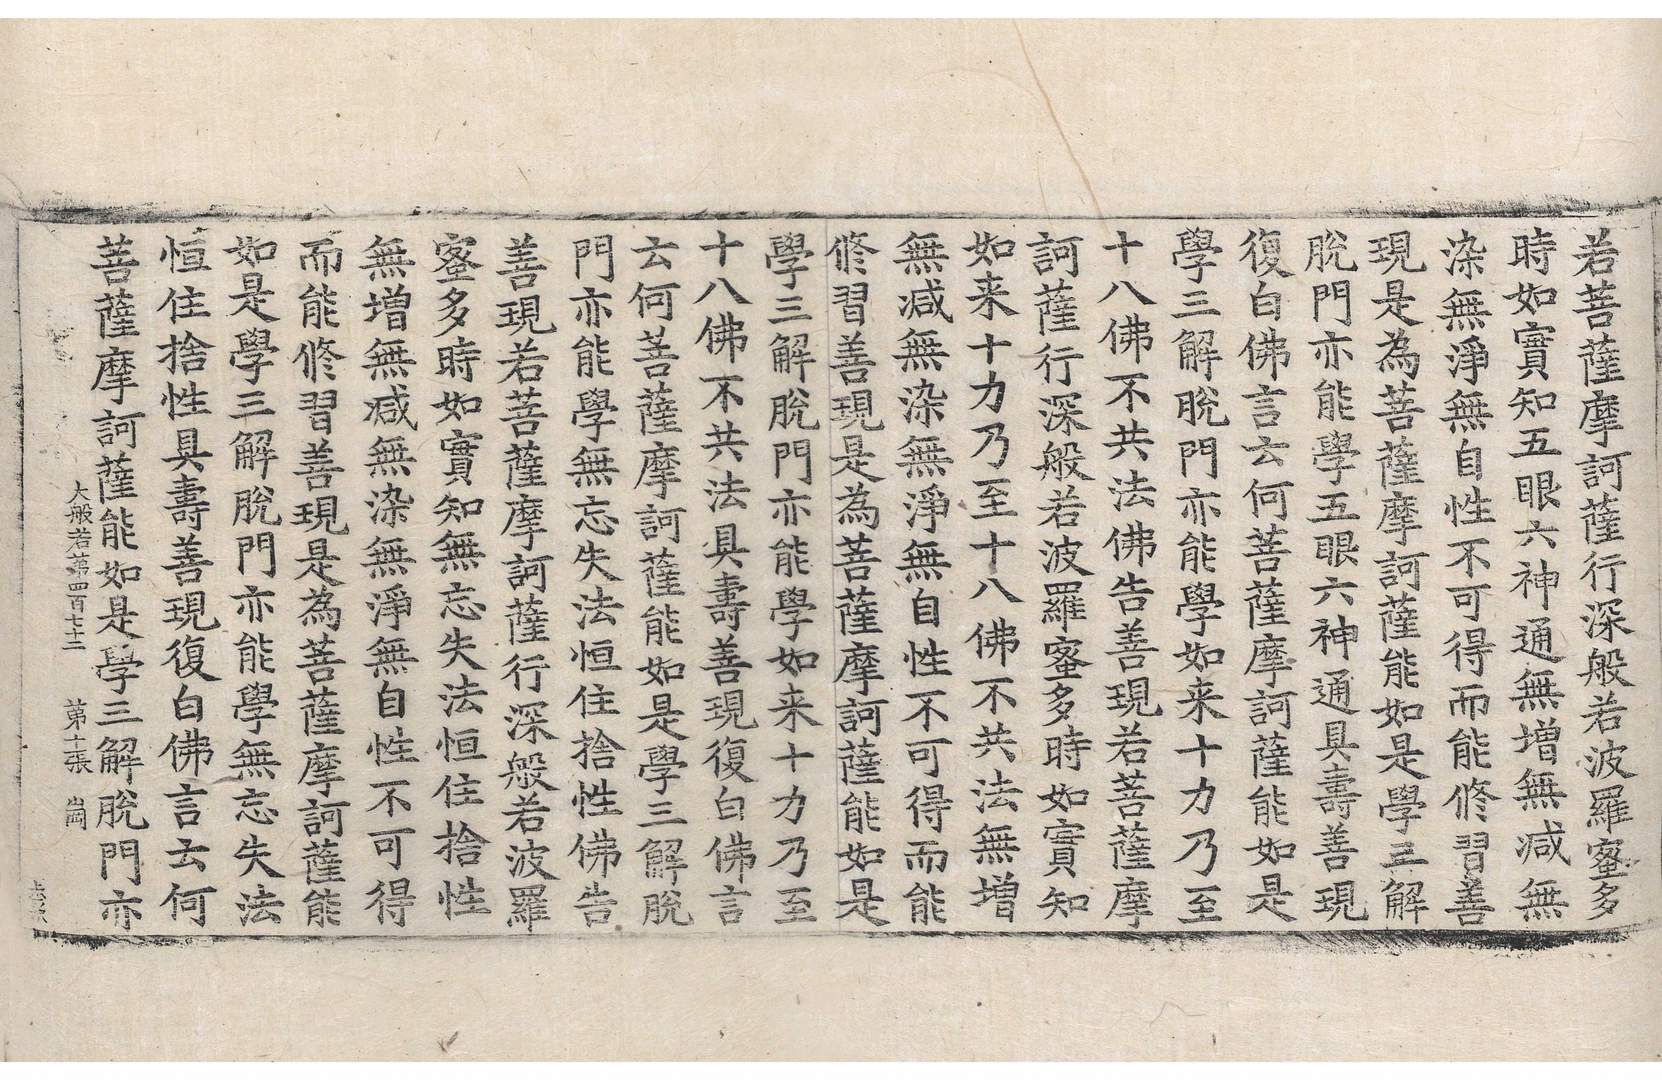 若菩薩摩訶薩行深般若波羅蜜多
時如實知五眼六神通無增無減無
染無淨無自性不可得而能修習善
現是為菩薩摩訶薩能如是學三解
脫門亦能學五眼六神通具壽善現
復白佛言云何菩薩摩訶薩能如是
學三解脫門亦能學如来十力乃至
十八佛不共法佛告善現若菩薩摩
訶薩行深般若波羅蜜多時如實知
如来十力乃至十八佛不共法無增
無減無染無淨無自性不可得而能
修習善現是為菩薩摩訶薩能如是
學三解脫門亦能學如来十力乃至
十八佛不共法具壽善現復白佛言
云何菩薩摩訶薩能如是學三解脫
門亦能學無忘失法恒住捨性佛告
善現若菩薩摩訶薩行深般若波羅
蜜多時如實知無忘失法恒住捨性
無增無減無染無淨無自性不可得
而能修習善現是為菩薩摩訶薩能
如是學三解脫門亦能學無忘失法
恒住捨性具壽善現復白佛言云何
菩薩摩訶薩能如是學三解脫門亦
大般若第四百七十二 第十張 崗